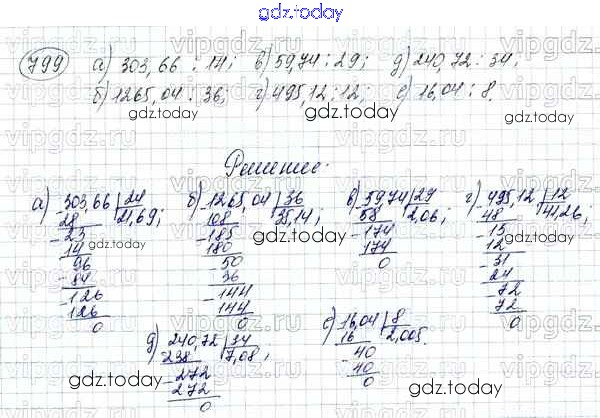 gdz.today
799 а) 303,66 : 14; в) 59,74 : 29; д) 240,72 : 34;
б) 1265,04 : 36; г) 495,12 : 12; е) 16,04 : 8.
gdz.today gdz.today gdz.today
Решение.
а) 303,66 | 24 б) 1265,04 | 36 в) 59,74 | 29 г) 495,12 | 12
28 21,69; 108 35,14; 58 2,06; 48 41,26;
- 23 - 185 - 174 - 15
14 180 174 12
- 96 - 50 0 - 31
84 36 24
- 126 - 144 - 72
126 144 72
0 0 0
gdz.today gdz.today gdz.today gdz.today
д) 240,72 | 34 е) 16,04 | 8
238 7,08; 16 2,005.
- 272 - 40
272 40
0 0
gdz.today gdz.today gdz.today
vipgdz.ru